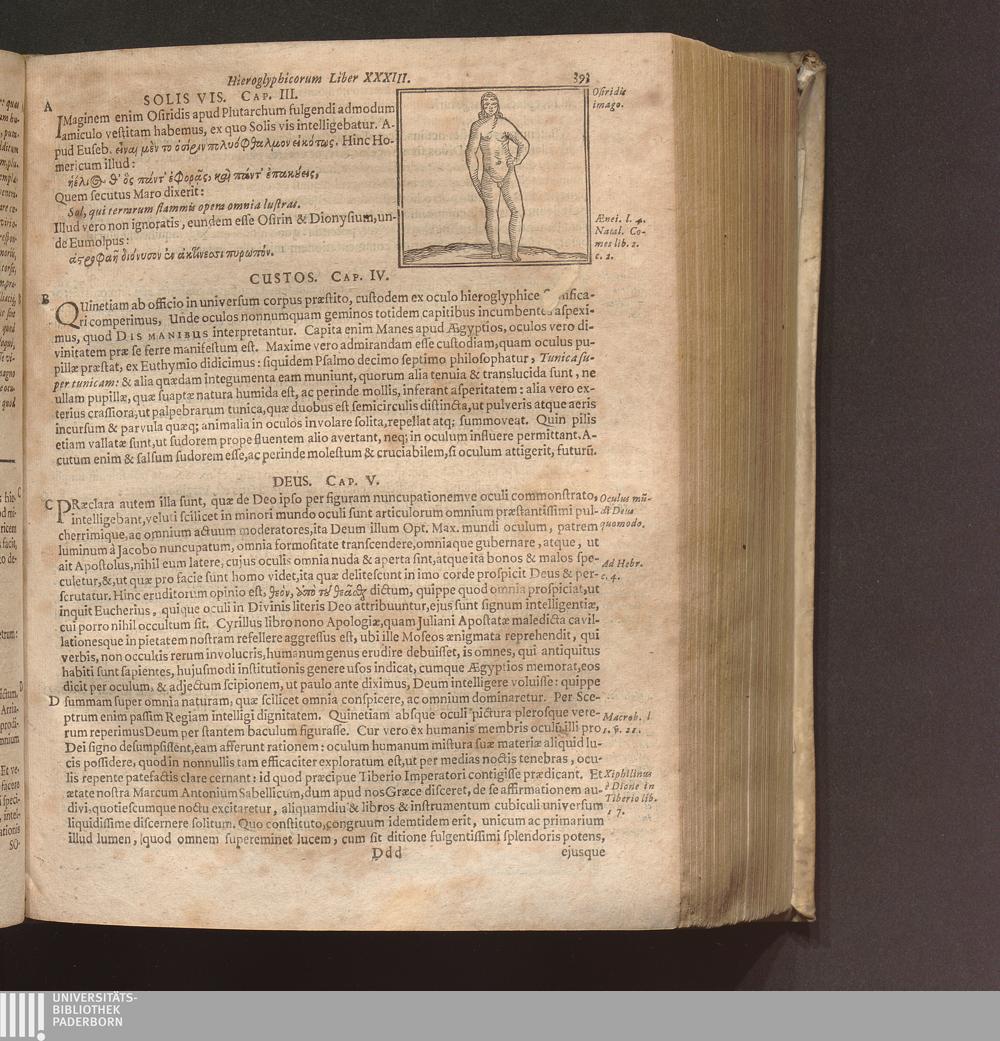 Hieroglyphicorum Liber XXXIII. 393
A
SOLIS VIS. CAP. III.
IMaginem enim Osiridis apud Plutarchum fulgendi admodum
amiculo vestitam habemus, ex quo Solis vis intelligebatur. A-
pud Euseb. εἶναι μὲν το ὀσίριν πολυόφθαλμον εἰκότως. Hinc Ho-
mericum illud:
ἠέλιος θ' ὃς πάντ' ἐφορᾷς, καὶ πάντ' ἐπακούεις,
Quem secutus Maro dixerit:
Sol, qui terrarum flammis opera omnia lustras.
Illud vero non ignoratis, eundem esse Osirin & Dionysium, un-
de Eumolpus:
ἀστροφαῆ διόνυσον ἐν ἀκτίνεσσι πυρωπόν.
Osiridis
imago.
Ænei. l. 4.
Natal. Co-
mes lib. 2.
c. 2.
CUSTOS. CAP. IV.
B
QUinetiam ab officio in universum corpus præstito, custodem ex oculo hieroglyphice nifica-
ri comperimus, Unde oculos nonnumquam geminos totidem capitibus incumbentes aspexi-
mus, quod DIS MANIBUS interpretantur. Capita enim Manes apud Ægyptios, oculos vero di-
vinitatem præ se ferre manifestum est. Maxime vero admirandam esse custodiam, quam oculus pu-
pillæ præstat, ex Euthymio didicimus: siquidem Psalmo decimo septimo philosophatur, Tunica su-
per tunicam: & alia quædam integumenta eam muniunt, quorum alia tenuia & translucida sunt, ne
ullam pupillæ, quæ suapte natura humida est, ac perinde mollis, inferant asperitatem: alia vero ex-
terius crassiora, ut palpebrarum tunica, quæ duobus est semicirculis distincta, ut pulveris atque aeris
incursum & parvula quæq; animalia in oculos involare solita, repellat atq; summoveat. Quin pilis
etiam vallatæ sunt, ut sudorem prope fluentem alio avertant, neq; in oculum influere permittant. A-
cutum enim & salsum sudorem esse, ac perinde molestum & cruciabilem, si oculum attigerit, futurũ.
DEUS. CAP. V.
C
PRæclara autem illa sunt, quæ de Deo ipso per figuram nuncupationemve oculi commonstrato,
intelligebant, veluti scilicet in minori mundo oculi sunt articulorum omnium præstantissimi pul-
cherrimique, ac omnium actuum moderatores, ita Deum illum Opt. Max. mundi oculum, patrem
luminum à Jacobo nuncupatum, omnia formositate transcendere, omniaque gubernare, atque, ut
ait Apostolus, nihil eum latere, cujus oculis omnia nuda & aperta sint, atque ita bonos & malos spe-
culetur, &, ut quæ pro facie sunt homo videt, ita quæ delitescunt in imo corde prospicit Deus & per-
scrutatur. Hinc eruditorum opinio est, θεὸν, ὑπὸ τοῦ θεᾶσθαι dictum, quippe quod omnia prospiciat, ut
inquit Eucherius, quique oculi in Divinis literis Deo attribuuntur, ejus sunt signum intelligentiæ,
cui porro nihil occultum sit. Cyrillus libro nono Apologiæ, quam Juliani Apostatæ maledicta cavil-
lationesque in pietatem nostram refellere aggressus est, ubi ille Moseos ænigmata reprehendit, qui
verbis, non occultis rerum involucris, humanum genus erudire debuisset, is omnes, qui antiquitus
habiti sunt sapientes, hujusmodi institutionis genere usos indicat, cumque Ægyptios memorat, eos
dicit per oculum, & adjectum scipionem, ut paulo ante diximus, Deum intelligere voluisse: quippe
D summam super omnia naturam, quæ scilicet omnia conspicere, ac omnium dominaretur. Per Sce-
ptrum enim passim Regiam intelligi dignitatem. Quinetiam absque oculi pictura plerosque vete-
rum reperimus Deum per stantem baculum figurasse. Cur vero ex humanis membris oculum illi pro
Dei signo desumpsissent, eam afferunt rationem: oculum humanum mistura suæ materiæ aliquid lu-
cis possidere, quod in nonnullis tam efficaciter exploratum est, ut per medias noctis tenebras, ocu-
lis repente patefactis clare cernant: id quod præcipue Tiberio Imperatori contigisse prædicant. Et
ætate nostra Marcum Antonium Sabellicum, dum apud nos Græce disceret, de se affirmationem au-
divi, quotiescumque noctu excitaretur, aliquamdiu & libros & instrumentum cubiculi universum
liquidissime discernere solitum. Quo constituto, congruum identidem erit, unicum ac primarium
illud lumen, quod omnem supereminet lucem, cum sit ditione fulgentissimi splendoris potens,
Oculus mũ-
di Deus
quomodo.
Ad Hebr.
c. 4.
Macrob. l.
1. c. 21.
Xiphilinus
è Dione in
Tiberio lib.
57.
Ddd ejusque
UNIVERSITÄTS-
BIBLIOTHEK
PADERBORN